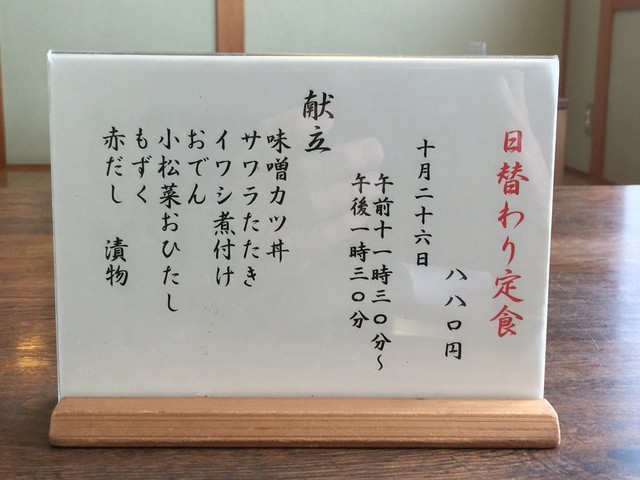 日替わり定食
八八〇円
十月二十六日
午前十一時三〇分～
午後一時三〇分
献立
味噌カツ丼
サワラたたき
イワシ煮付け
おでん
小松菜おひたし
もずく
赤だし　漬物